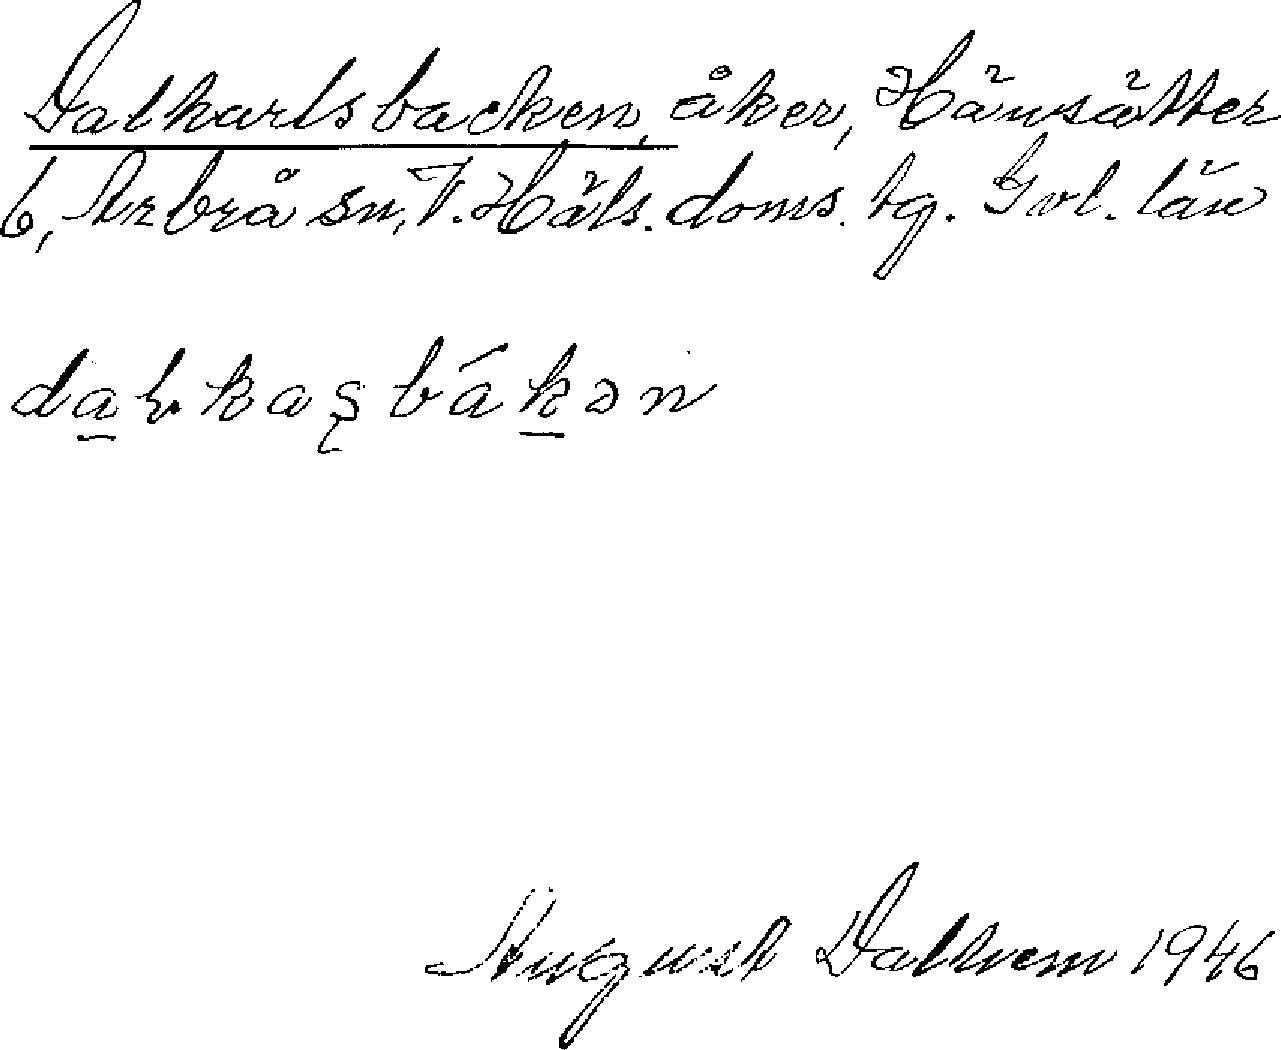 Dalkarlsbacken, åker, Hänsätter
6, Arbrå sn, V. Häls. doms. tg. Gvl. län
August Dalhem 1946